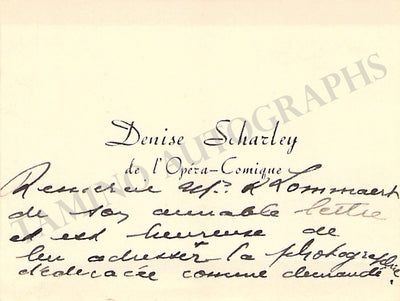 Denise Scharley
de l'Opera-Comique
Remercie Mr. L'Hommaert
de son aimable lettre
et est heureuse de
lui adresser la photographie
dédicacée comme demandé.
TAMINO AUTOGRAPHS